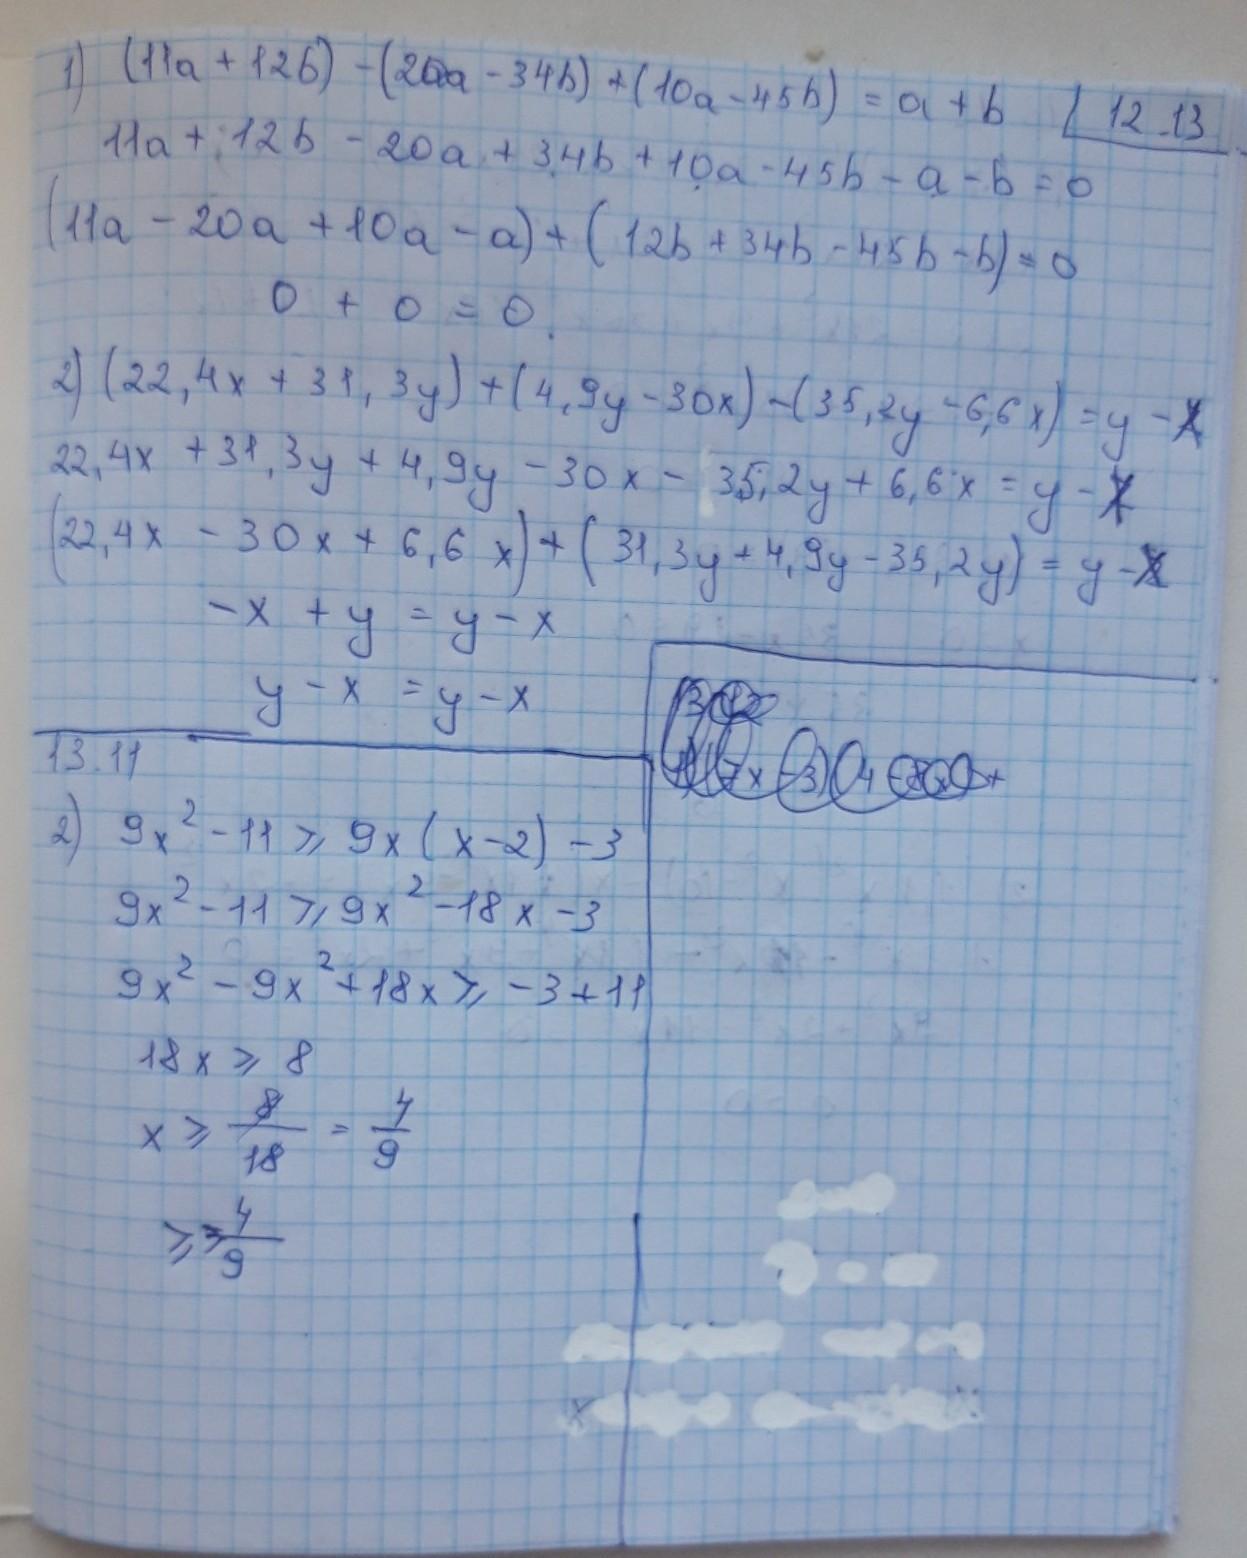 1) (11a + 12b) - (20a - 34b) + (10a - 45b) = a + b
12.13
11a + 12b - 20a + 34b + 10a - 45b - a - b = 0
(11a - 20a + 10a - a) + (12b + 34b - 45b - b) = 0
0 + 0 = 0.
2) (22,4x + 31,3y) + (4,9y - 30x) - (35,2y - 6,6x) = y - x
22,4x + 31,3y + 4,9y - 30x - 35,2y + 6,6x = y - x
(22,4x - 30x + 6,6x) + (31,3y + 4,9y - 35,2y) = y - x
-x + y = y - x
y - x = y - x
13.11
2) 9x² - 11 ⩾ 9x(x - 2) - 3
9x² - 11 ⩾ 9x² - 18x - 3
9x² - 9x² + 18x ⩾ -3 + 11
18x ⩾ 8
x ⩾ 8/18 = 4/9
⩾ ⩾ 4/9